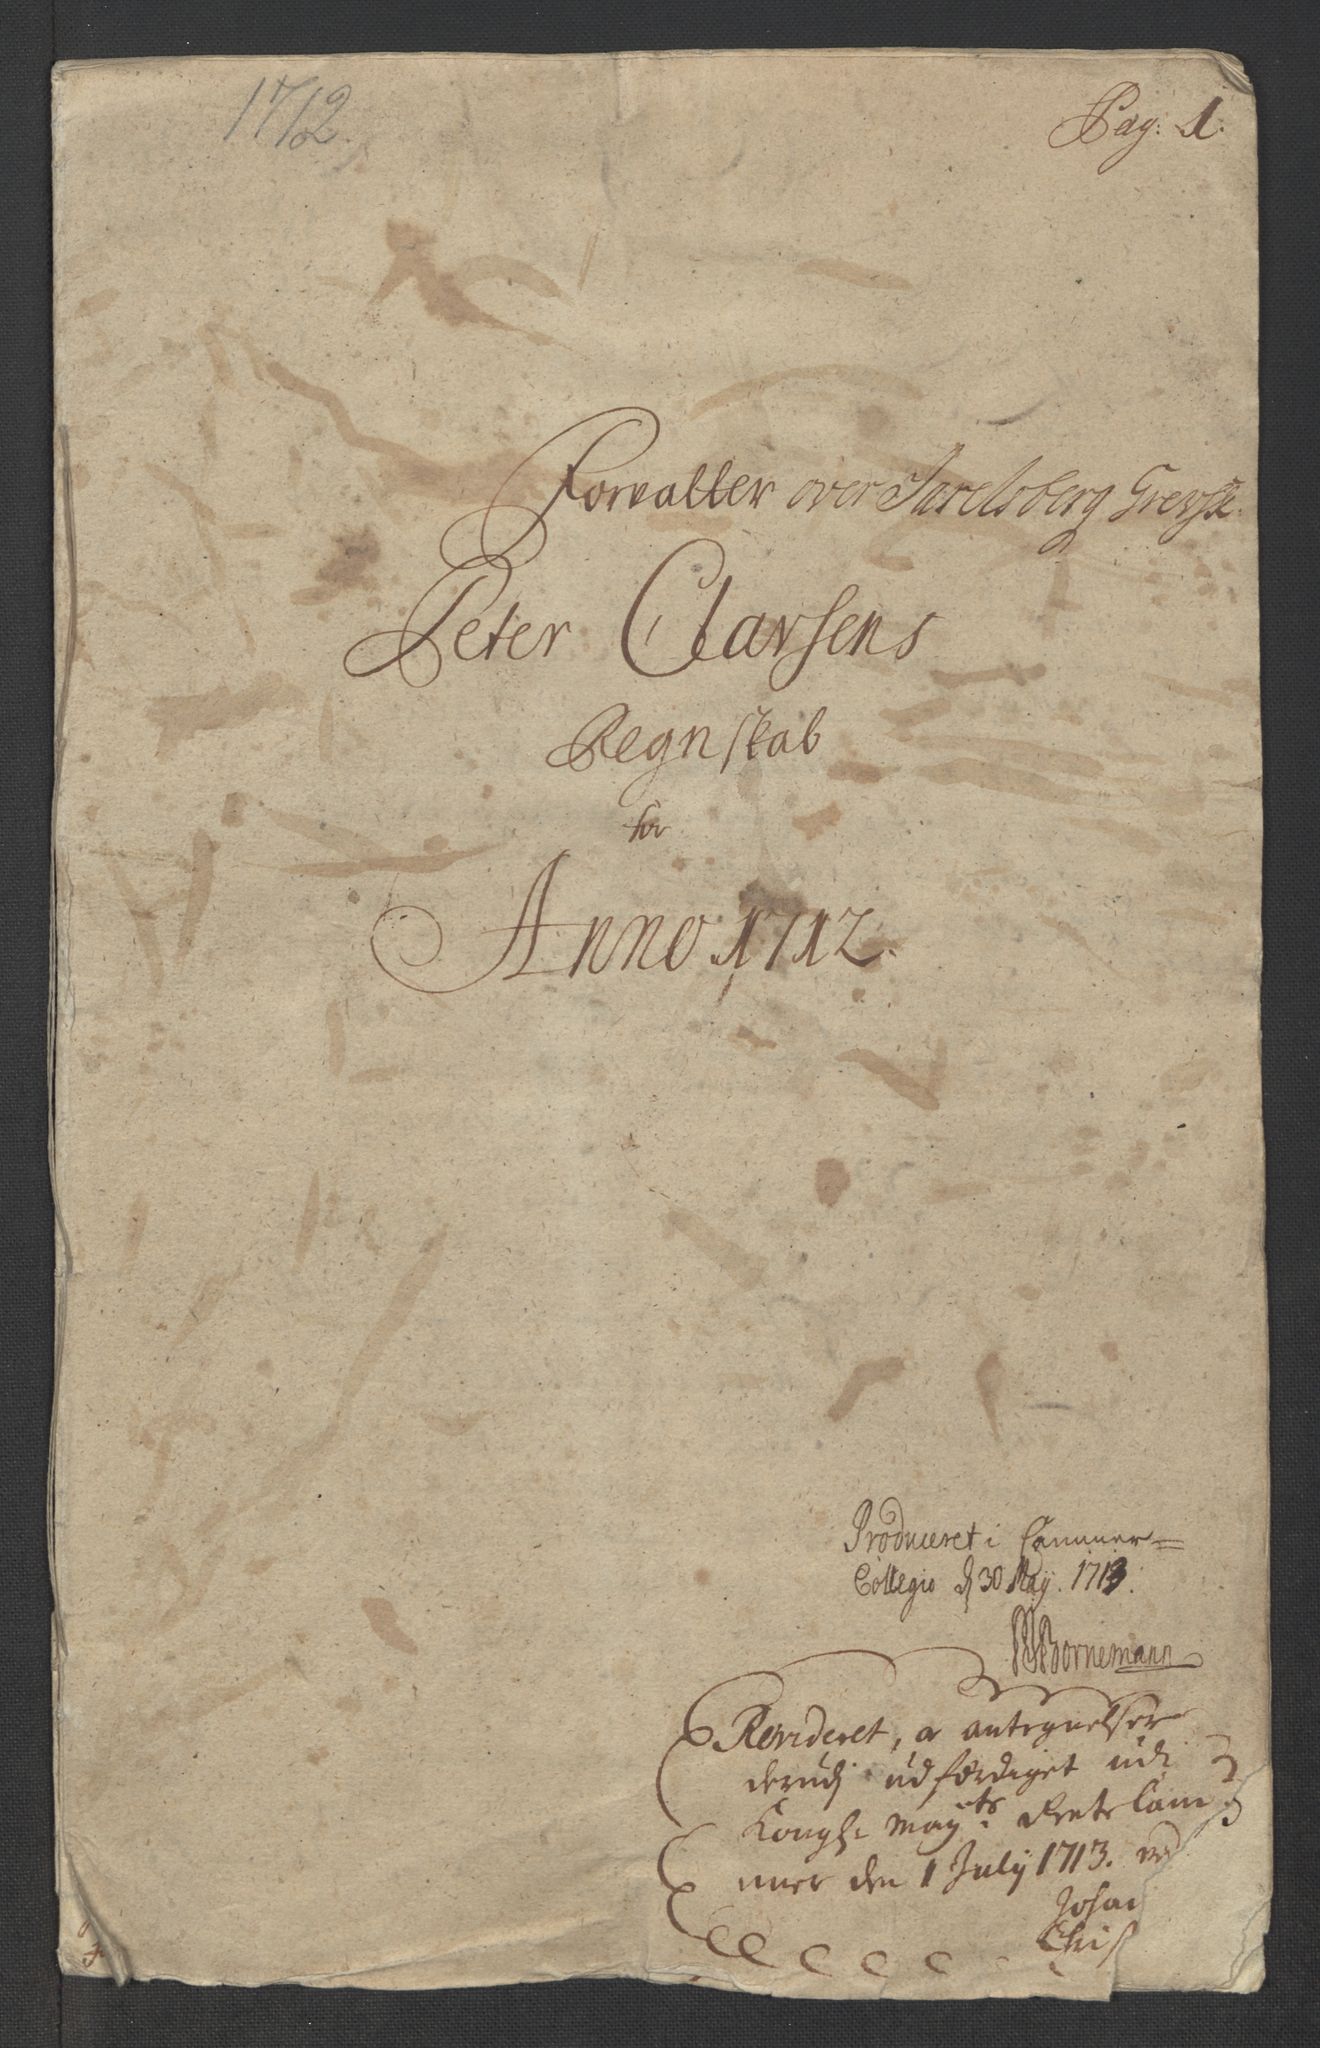 1712.
Pag: 1.
Forvalter over Jarelsberg Grevsk:
Peter Clarsens
Regnskab
for
Anno 1712.
Produceret i Cammer=
Collegio d 30 Maÿ. 1713.
Bornemann
Revideret, oc antegnelser
derudj udferdiget udi
Kongl: Mayts: Rente Cam
mer den 1 Julÿ 1713. ved
Johan
Chris